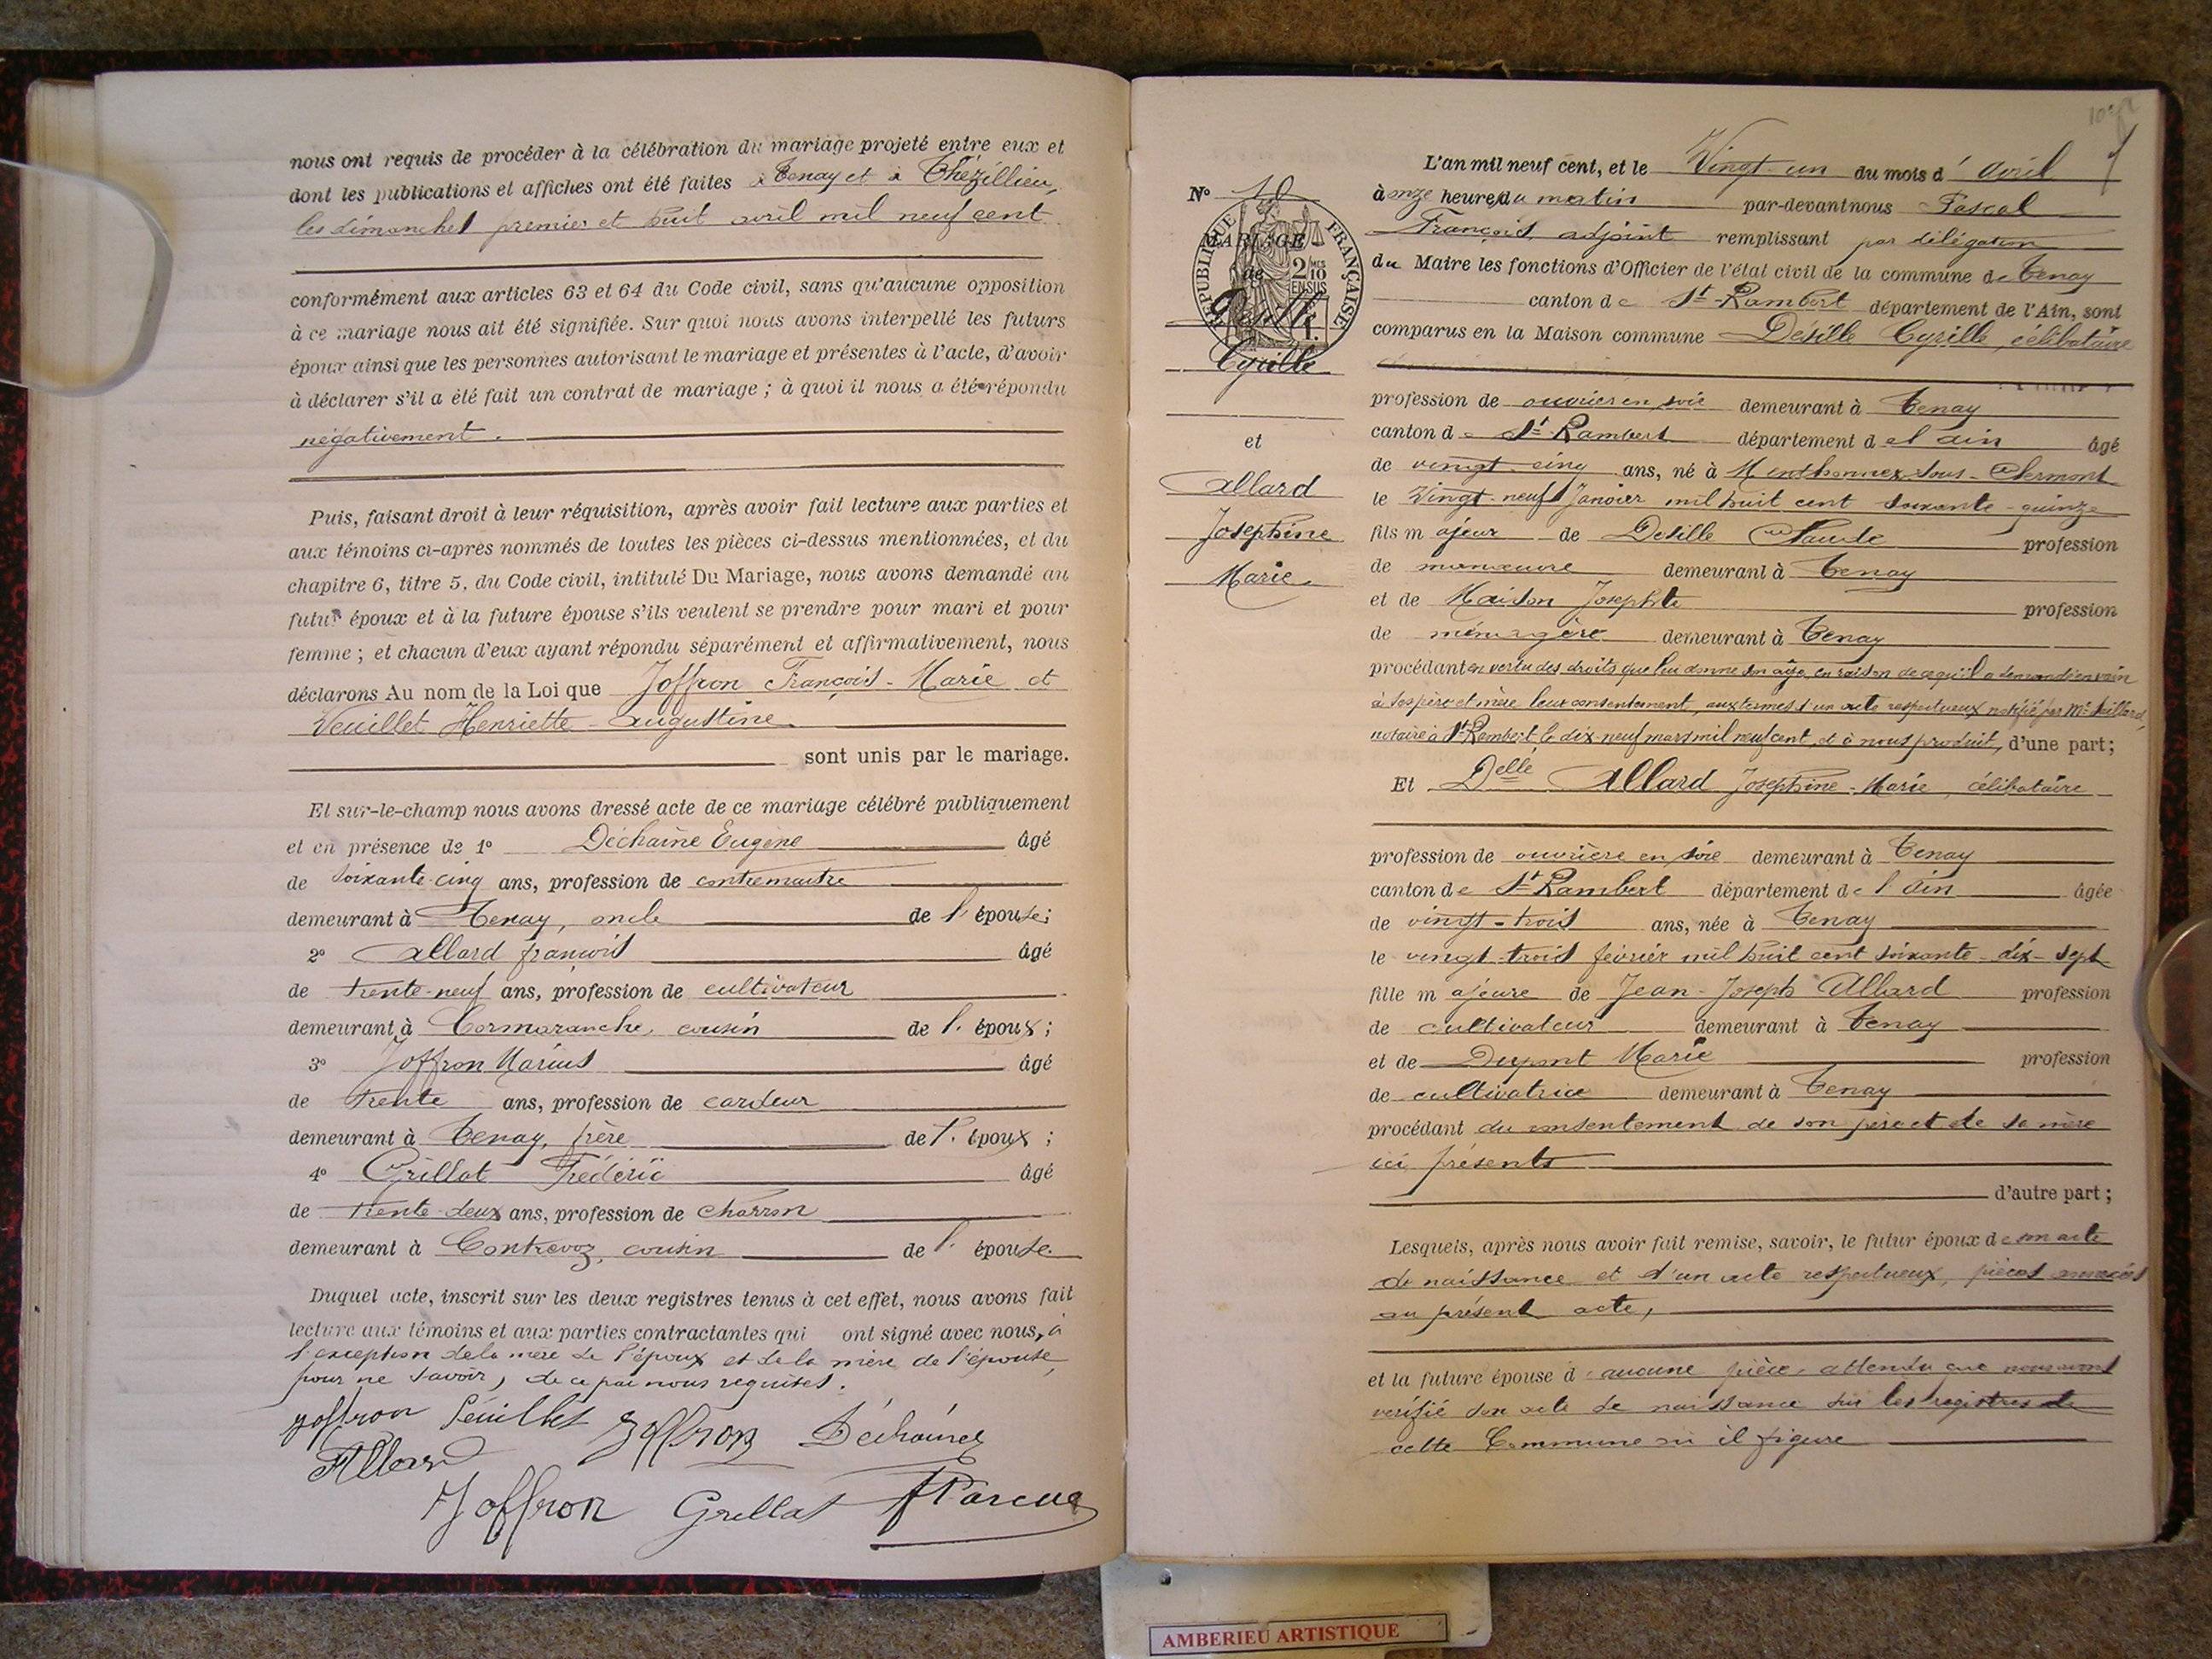 nous ont requis de procéder à la célébration du mariage projeté entre eux et
dont les publications et affiches ont été faites à Tenay et à Thézillieu,
les dimanches premier et huit avril mil neuf cent
conformément aux articles 63 et 64 du Code civil, sans qu'aucune opposition
à ce mariage nous ait été signifiée. Sur quoi nous avons interpellé les futurs
époux ainsi que les personnes autorisant le mariage et présentes à l'acte, d'avoir
à déclarer s'il a été fait un contrat de mariage ; à quoi il nous a été répondu
négativement.
Puis, faisant droit à leur réquisition, après avoir fait lecture aux parties et
aux témoins ci-après nommés de toutes les pièces ci-dessus mentionnées, et du
chapitre 6, titre 5, du Code civil, intitulé Du Mariage, nous avons demandé au
futur époux et à la future épouse s'ils veulent se prendre pour mari et pour
femme ; et chacun d'eux ayant répondu séparément et affirmativement, nous
déclarons Au nom de la Loi que Joffron François-Marie et
Veuillet Henriette-Augustine
sont unis par le mariage.
Et sur-le-champ nous avons dressé acte de ce mariage célébré publiquement
et en présence de 1° Déchaîne Eugène âgé
de soixante-cinq ans, profession de contremaitre
demeurant à Tenay, oncle de l'épouse ;
2° Allard françois âgé
de trente-neuf ans, profession de cultivateur
demeurant à Cormaranche, cousin de l'époux ;
3° Joffron Marius âgé
de trente ans, profession de cardeur
demeurant à Tenay, frère de l'époux ;
4° Grillat Frédéric âgé
de trente-deux ans, profession de charron
demeurant à Contrevoz, cousin de l'épouse.
Duquel acte, inscrit sur les deux registres tenus à cet effet, nous avons fait
lecture aux témoins et aux parties contractantes qui ont signé avec nous, à
l'exception de la mère de l'époux et de la mère de l'épouse,
pour ne savoir, de ce par nous requises.
Joffron Veuillet Joffron Déchaîne
F Allard
Joffron Grillat F Pascal
L'an mil neuf cent, et le Vingt-un du mois d'Avril
à onze heures du matin par-devant nous Pascal
François, adjoint remplissant par délégation
du Maire les fonctions d'Officier de l'état civil de la commune de Tenay
canton de St-Rambert département de l'Ain, sont
comparus en la Maison commune Désille Cyrille, célibataire
N° 10
RÉPUBLIQUE FRANÇAISE
2 10
MARIAGE
de
Désille
Cyrille
et
Allard
Joséphine
Marie
profession de ouvrier en soie demeurant à Tenay
canton de St-Rambert département de l'ain âgé
de vingt-cinq ans, né à Menthonnex-sous-Clermont
le Vingt-neuf Janvier mil huit cent soixante-quinze
fils majeur de Désille Claude profession
de manœuvre demeurant à Tenay
et de Maison Josephte profession
de ménagère demeurant à Tenay
procédant en vertu des droits que lui donne son âge, en raison de ce qu'il a demandé en vain
à ses père et mère leur consentement, aux termes d'un acte respectueux notifié par Me
notaire à St-Rambert, le dix-neuf mars mil neuf cent, et à nous produit, d'une part ;
Et Delle Allard Joséphine-Marie, célibataire
profession de ouvrière en soie demeurant à Tenay
canton de St-Rambert département de l'Ain âgée
de vingt-trois ans, née à Tenay
le vingt-trois février mil huit cent soixante-dix-sept
fille majeure de Jean-Joseph Allard profession
de cultivateur demeurant à Tenay
et de Dupont Marie profession
de cultivatrice demeurant à Tenay
procédant du consentement de son père et de sa mère
ici présents
d'autre part ;
Lesquels, après nous avoir fait remise, savoir, le futur époux de son acte
de naissance et d'un acte respectueux, pièces annexées
au présent acte,
et la future épouse d'aucune pièce, attendu que nous avons
vérifié son acte de naissance sur les registres de
cette Commune où il figure
AMBERIEU ARTISTIQUE